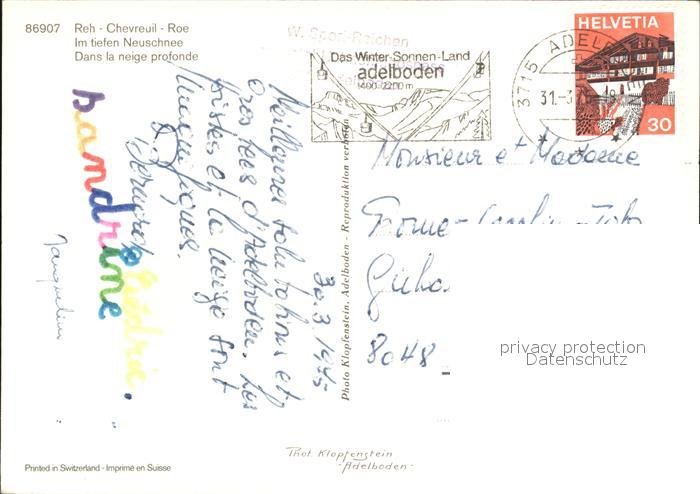 86907 Reh - Chevreuil - Roe
Im tiefen Neuschnee
Dans la neige profonde
W. Sport-Reichen
Das Winter-Sonnen-Land
adelboden
1400-2200 m
3715 ADELBODEN
31.-3.75-18
HELVETIA
30
30.3.1975
Meilleures salutations et
gros becs d'Adelboden. Les
pistes et la neige sont
magnifiques.
Bernard
Cédric.
Sandrine
Jacqueline
Monsieur et Madame
8048
Photo Klopfenstein, Adelboden - Reproduktion verboten
privacy protection
Datenschutz
Phot. Klopfenstein
- Adelboden -
Printed in Switzerland - Imprimé en Suisse